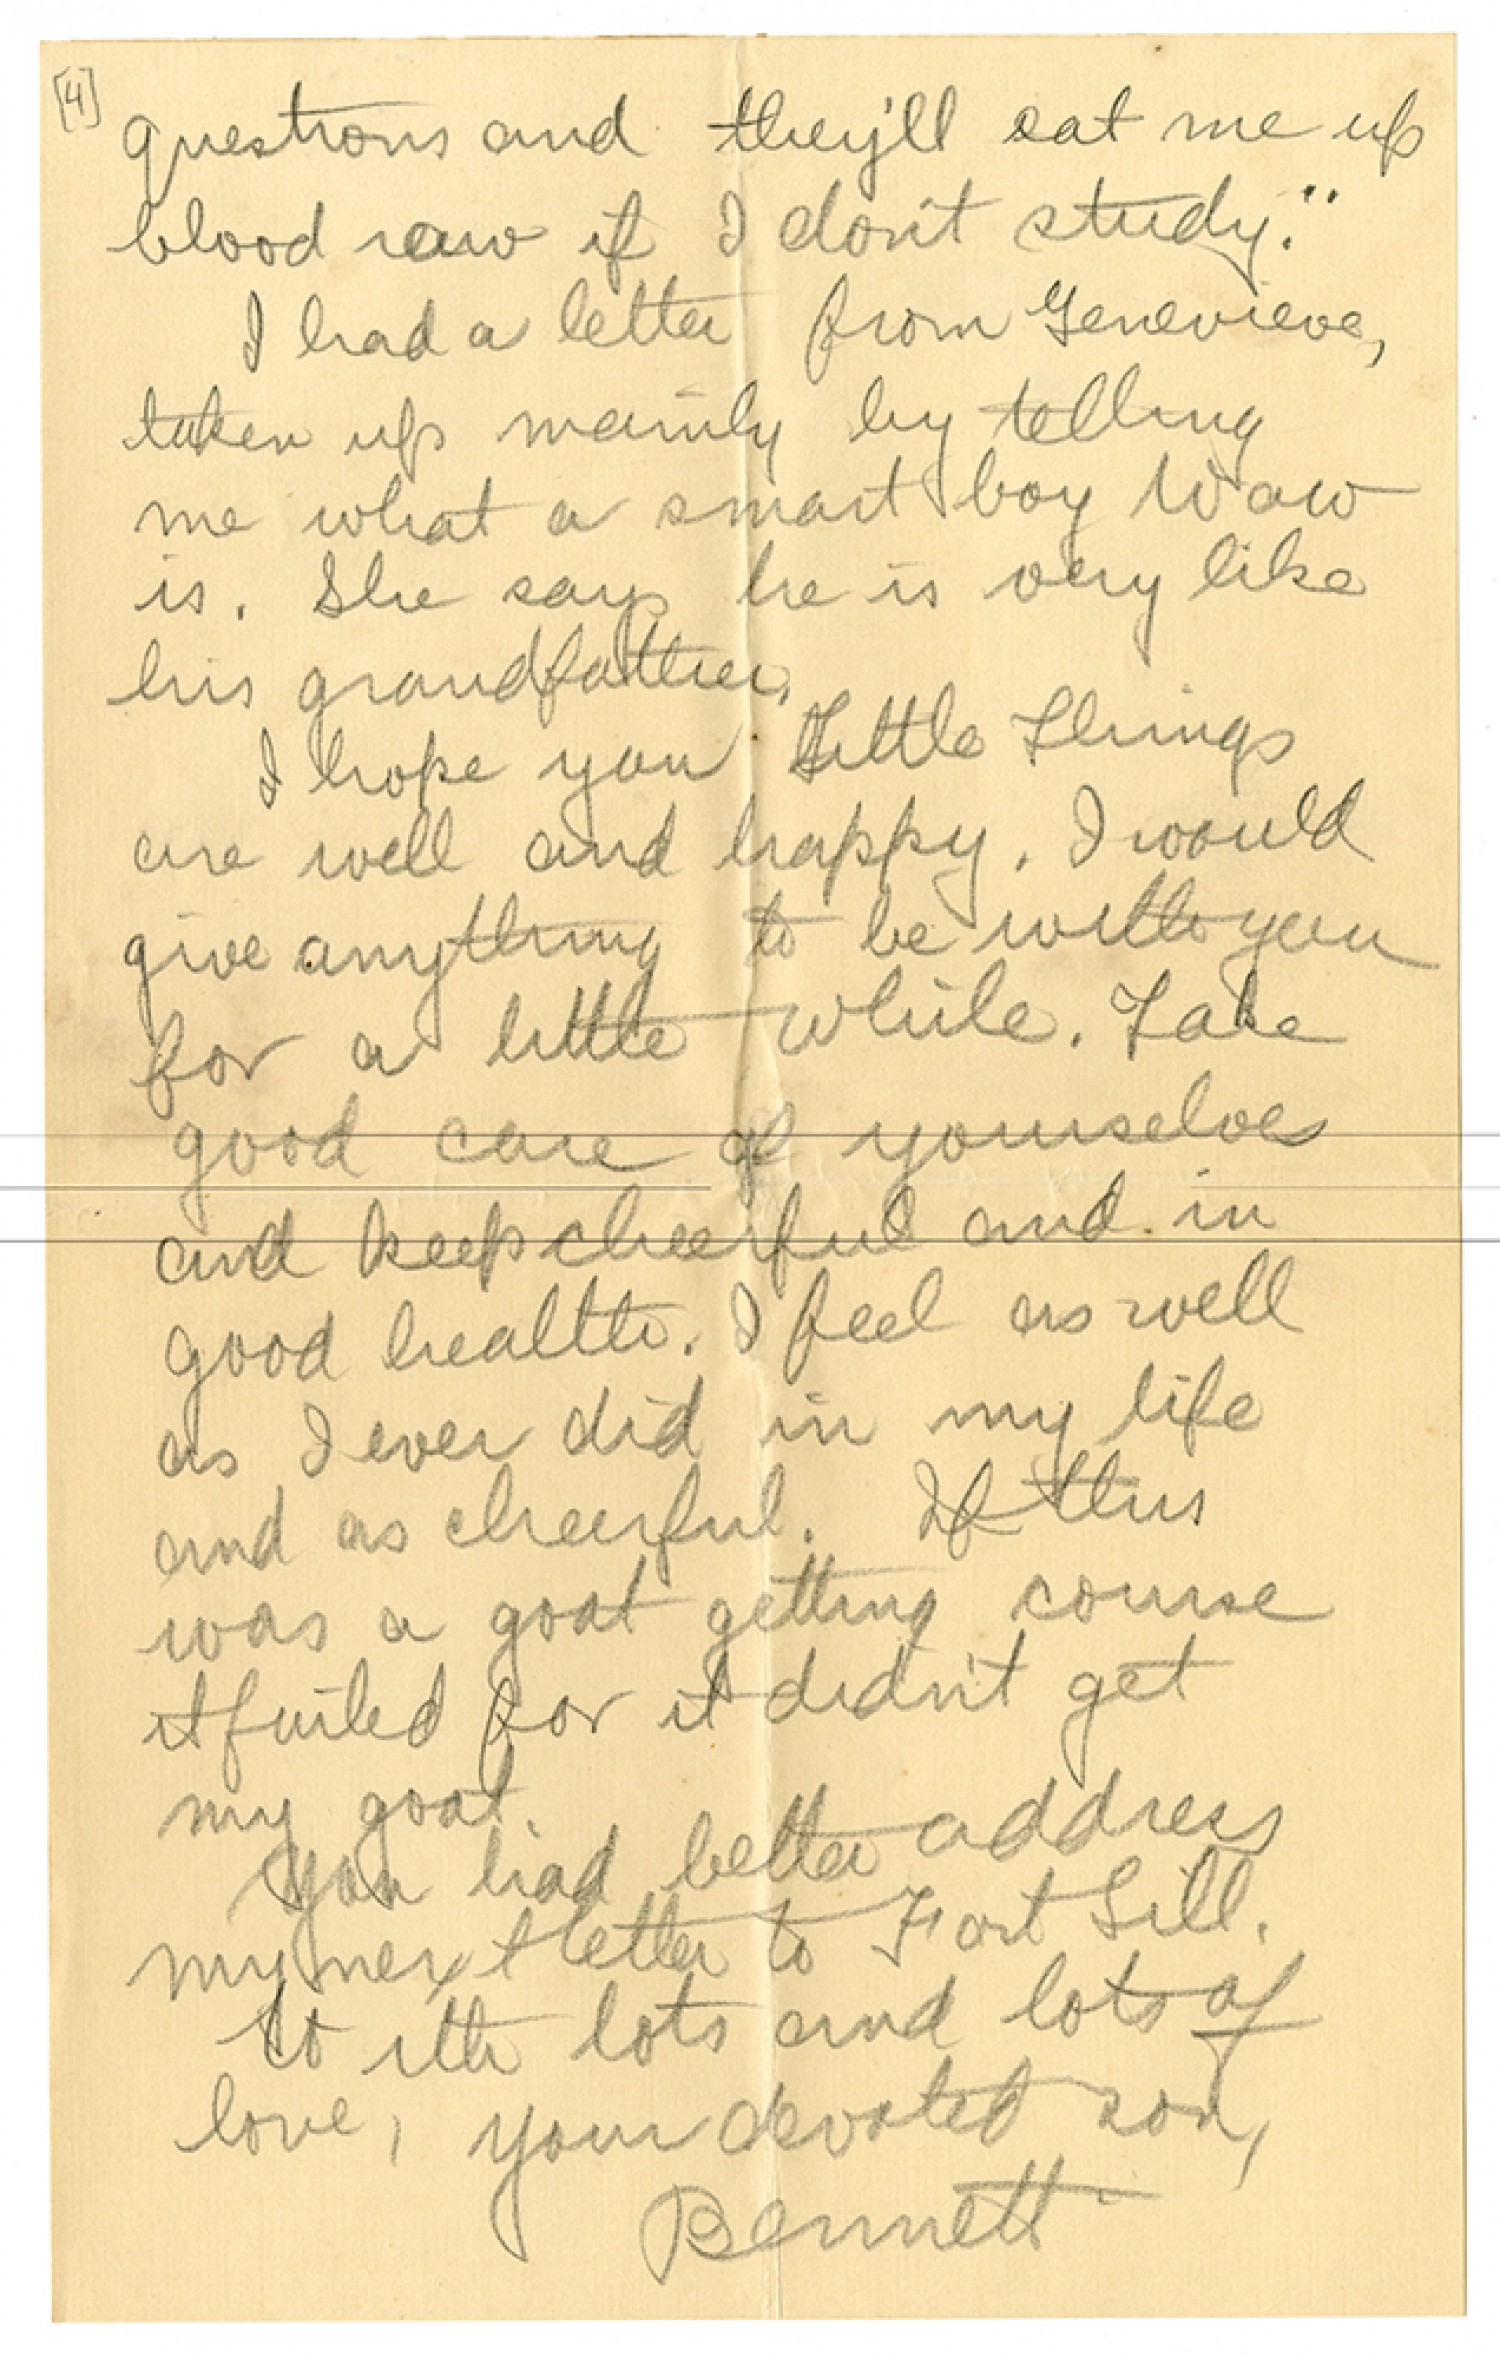 [4]
questions and they'll eat me up
blood raw if I don't study."
I had a letter from Genevieve,
taken up mainly by telling
me what a smart boy Waw
is. She says he is very like
his grandfather.
I hope you Little Things
are well and happy. I would
give anything to be with you
for a little while. Take
good care of yourselves
and keep cheerful and in
good health. I feel as well
as I ever did in my life
and as cheerful. If this
was a goat getting course
it failed for it didn't get
my goat.
You had better address
my next letter to Fort Sill.
With lots and lots of
love, your devoted son,
Bennett